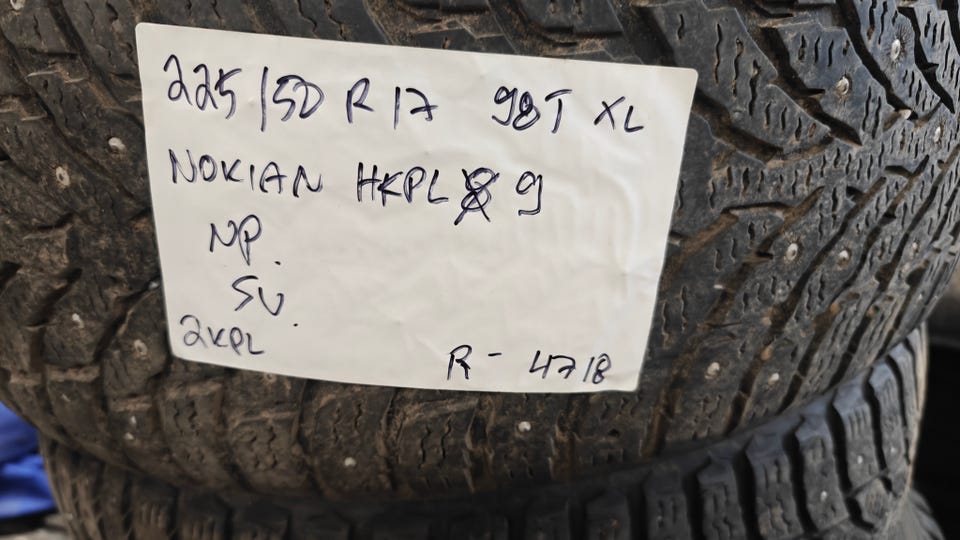 225/50 R 17 98T XL
NOKIAN HKPL 9
NP.
SU.
2KPL
R - 4718